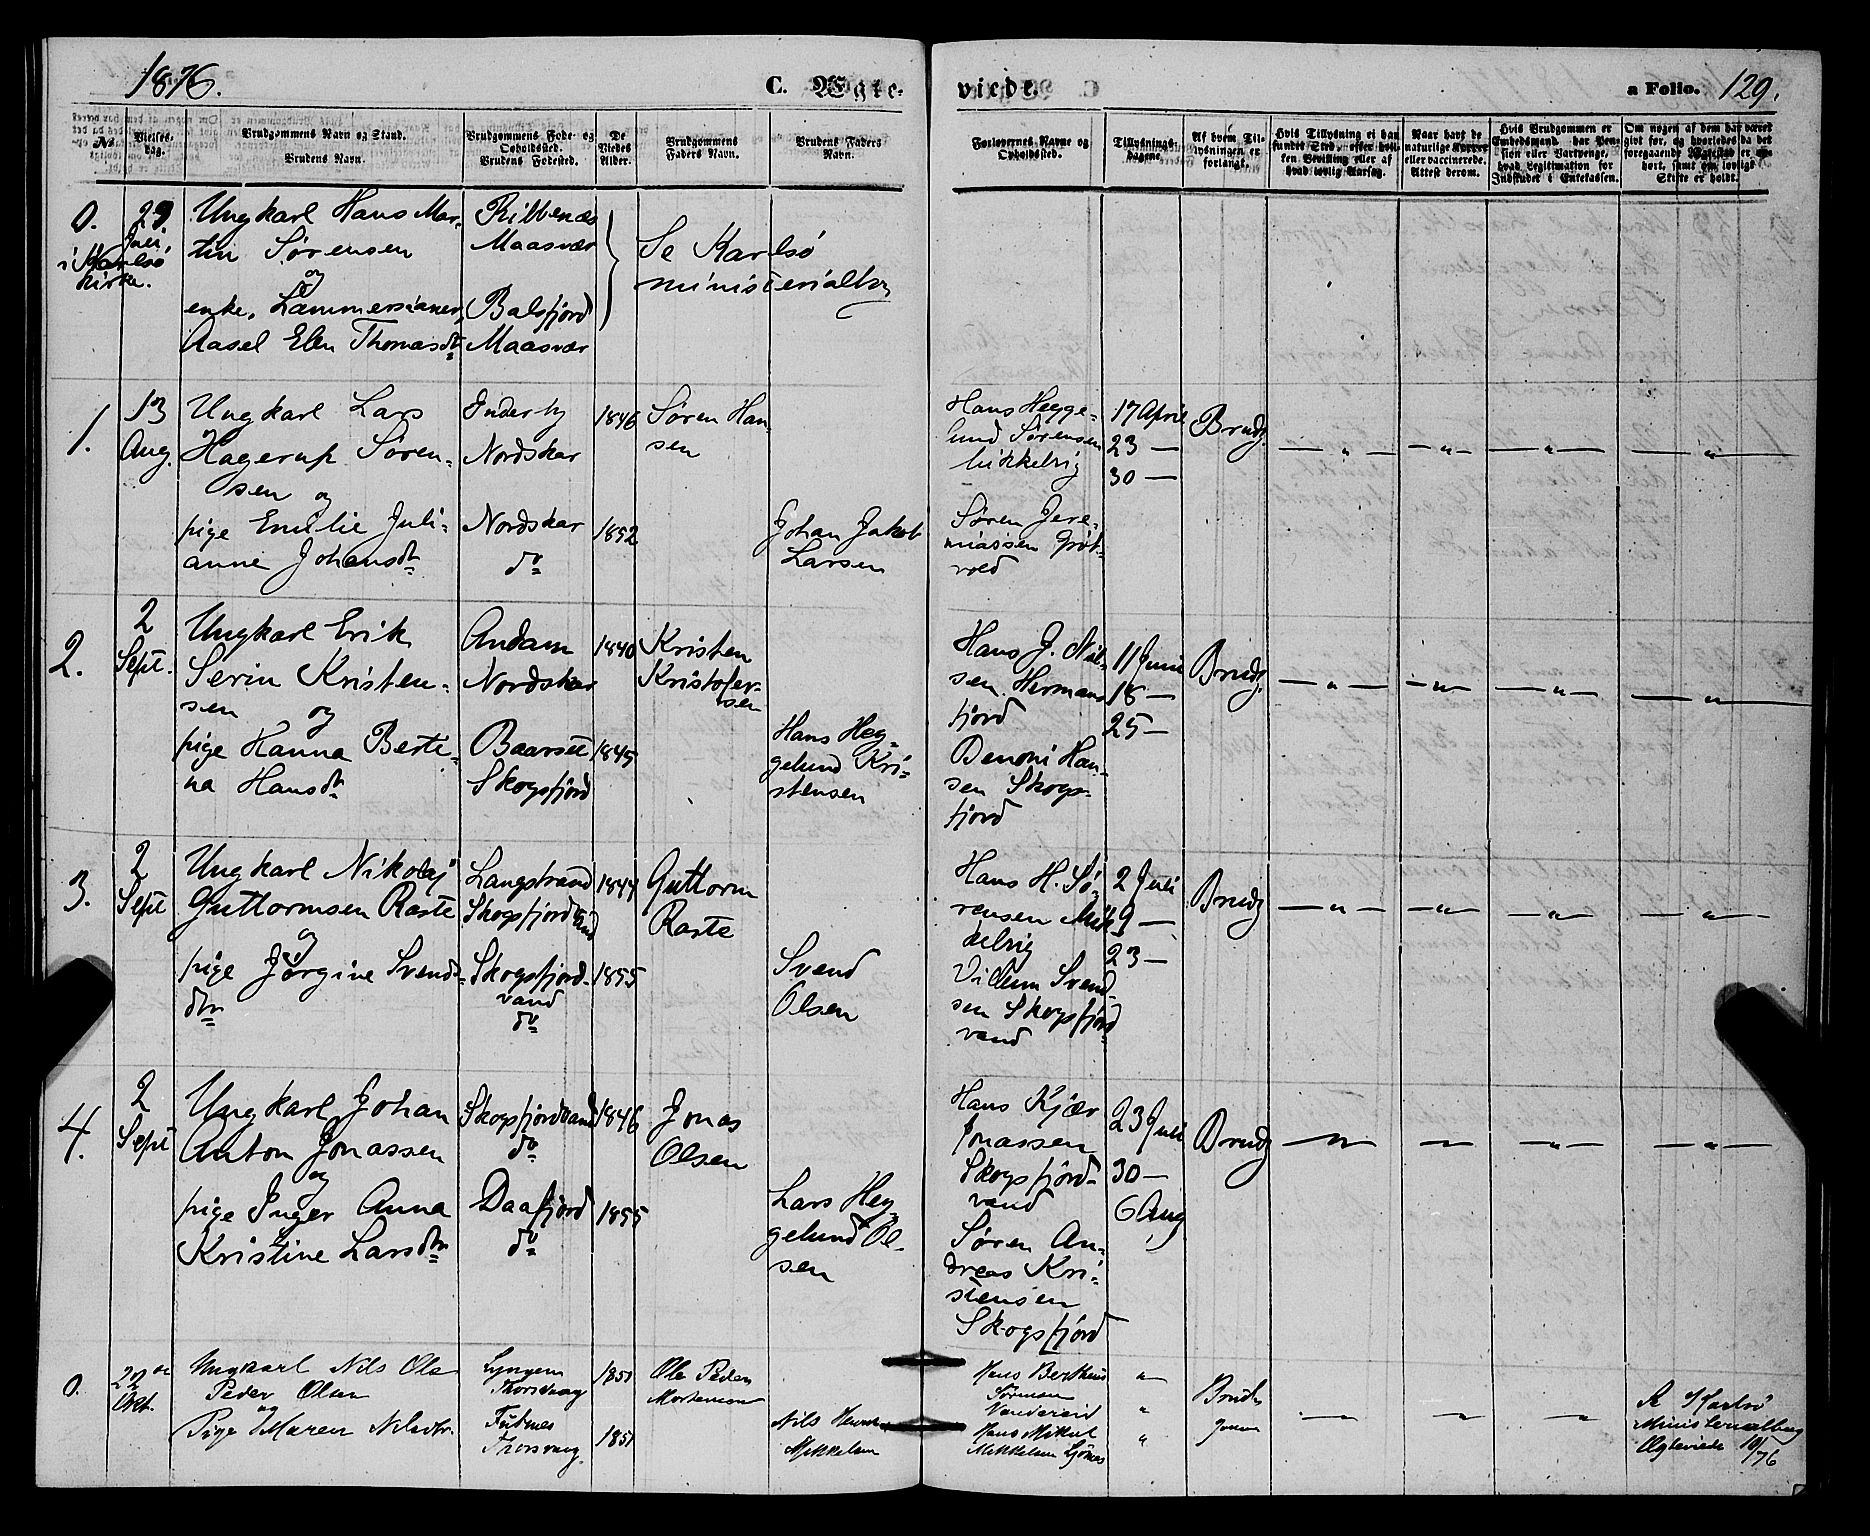 1876.
C. Ægte-
viede.
a Folio. 129.
No
Vielses-
dag.
Brudgommens Navn og Stand.
Brudens Navn.
Brudgommens Føde- og
Opholdssted.
Brudens Fødested.
De
Viedes
Alder.
Brudgommens
Faders Navn.
Brudens Faders
Navn.
Forlovernes Navne og
Opholdssted.
Tillysnings-
dagene.
Af hvem Til-
lysningen er
forlangt.
Hvis Tillysning ei har
fundet Sted, efter hvil-
ken Bevilling eller af
hvad lovlig Aarsag.
Naar havt de
naturlige Kopper
eller vaccinerede.
Attest derom.
Hvis Brudgommen er
Embedsmand, har Pen-
sion eller Vartpenge,
hvad Legitimation for
Indskudet i Enkekassen.
Om nogen af dem har været
givt før, og hvorledes da det
foregaaende Ægteskab er op-
hørt, samt om lovligt
Skifte er holdt.
0.
29
i Karlsø
kirke.
Ungkarl Hans Mar-
tin Sørensen
og
enke, Lammersianer,
Aasel Elen Thomasdtr
Ribbenæs
Maasvær
Balsfjord
Maasvær
Se Karlsø
ministerialbog
1.
13
Aug.
Ungkarl Lars
Hagerup Søren-
sen og
pige Emilie Juli-
anne Johansdtr
Inderby
Nordskar
Nordskar
do
1846
1852
Søren Han-
sen
Johan Jakob
Larsen
Hans Hegge-
lund Sørensen
Mikkelvig
Søren Jere-
miassen Grøt-
vold
17 April
23 —
30 —
Brudg.
— " —
— " —
— " —
— " —
2.
2
Sept.
Ungkarl Erik
Serin Kristen-
sen og
pige Hanna Berte-
na Hansdtr
Andam
Nordskar
Baarset
Skogsfjord
1840
1845
Kristen
Kristofer-
sen
Hans Heg-
gelund Kri-
stensen
Hans J. Nil-
sen Hermans
fjord
Benoni Han-
sen Skogs-
fjord
11 Juni
18 —
25 —
Brudg.
— " —
— " —
— " —
— " —
3.
2
Sept
Ungkarl Nikolaj
Guttormsen Raste
og
pige Jørgine Svends-
dtr
Langstrand
Skogsfjordvand
Skogsfjord-
vand
do
1844
1855
Guttorm
Raste
Svend
Olsen
Hans H. Sø-
rensen Mik-
kelvig
Villum Svend-
sen Skogsfjord
vand
2 Juli
9 —
23 —
Brudg
— " —
— " —
— " —
— " —
4.
2
Sept
Ungkarl Johan
Anton Jonassen
og
pige Inger Anna
Kristine Larsdtr
Skogsfjordvand
do
Daafjord
do
1846
1855
Jonas
Olsen
Lars Heg-
gelund Ol-
sen
Hans Kjær
Jonassen
Skogsfjord-
vand
Søren An-
dreas Kri-
stensen
Skogsfjord
23 Juli
30 —
6 Aug
Brudg
— " —
— " —
— " —
— " —
0.
22
Okt.
Ungkarl Nils Ole
Peder Olsen
og
Pige Maren Nilsdtr.
Lyngen
Thorsvaag
1851
1851
Ole Peder
Mortensen
Nils
Mikkelsen
Hans
Sørensen
Vandereid
Hans Mikal
Mikkelsen
"
"
"
— " —
— " —
— " —
Karlsø
Ministerialbog
Ægteviede 10/76